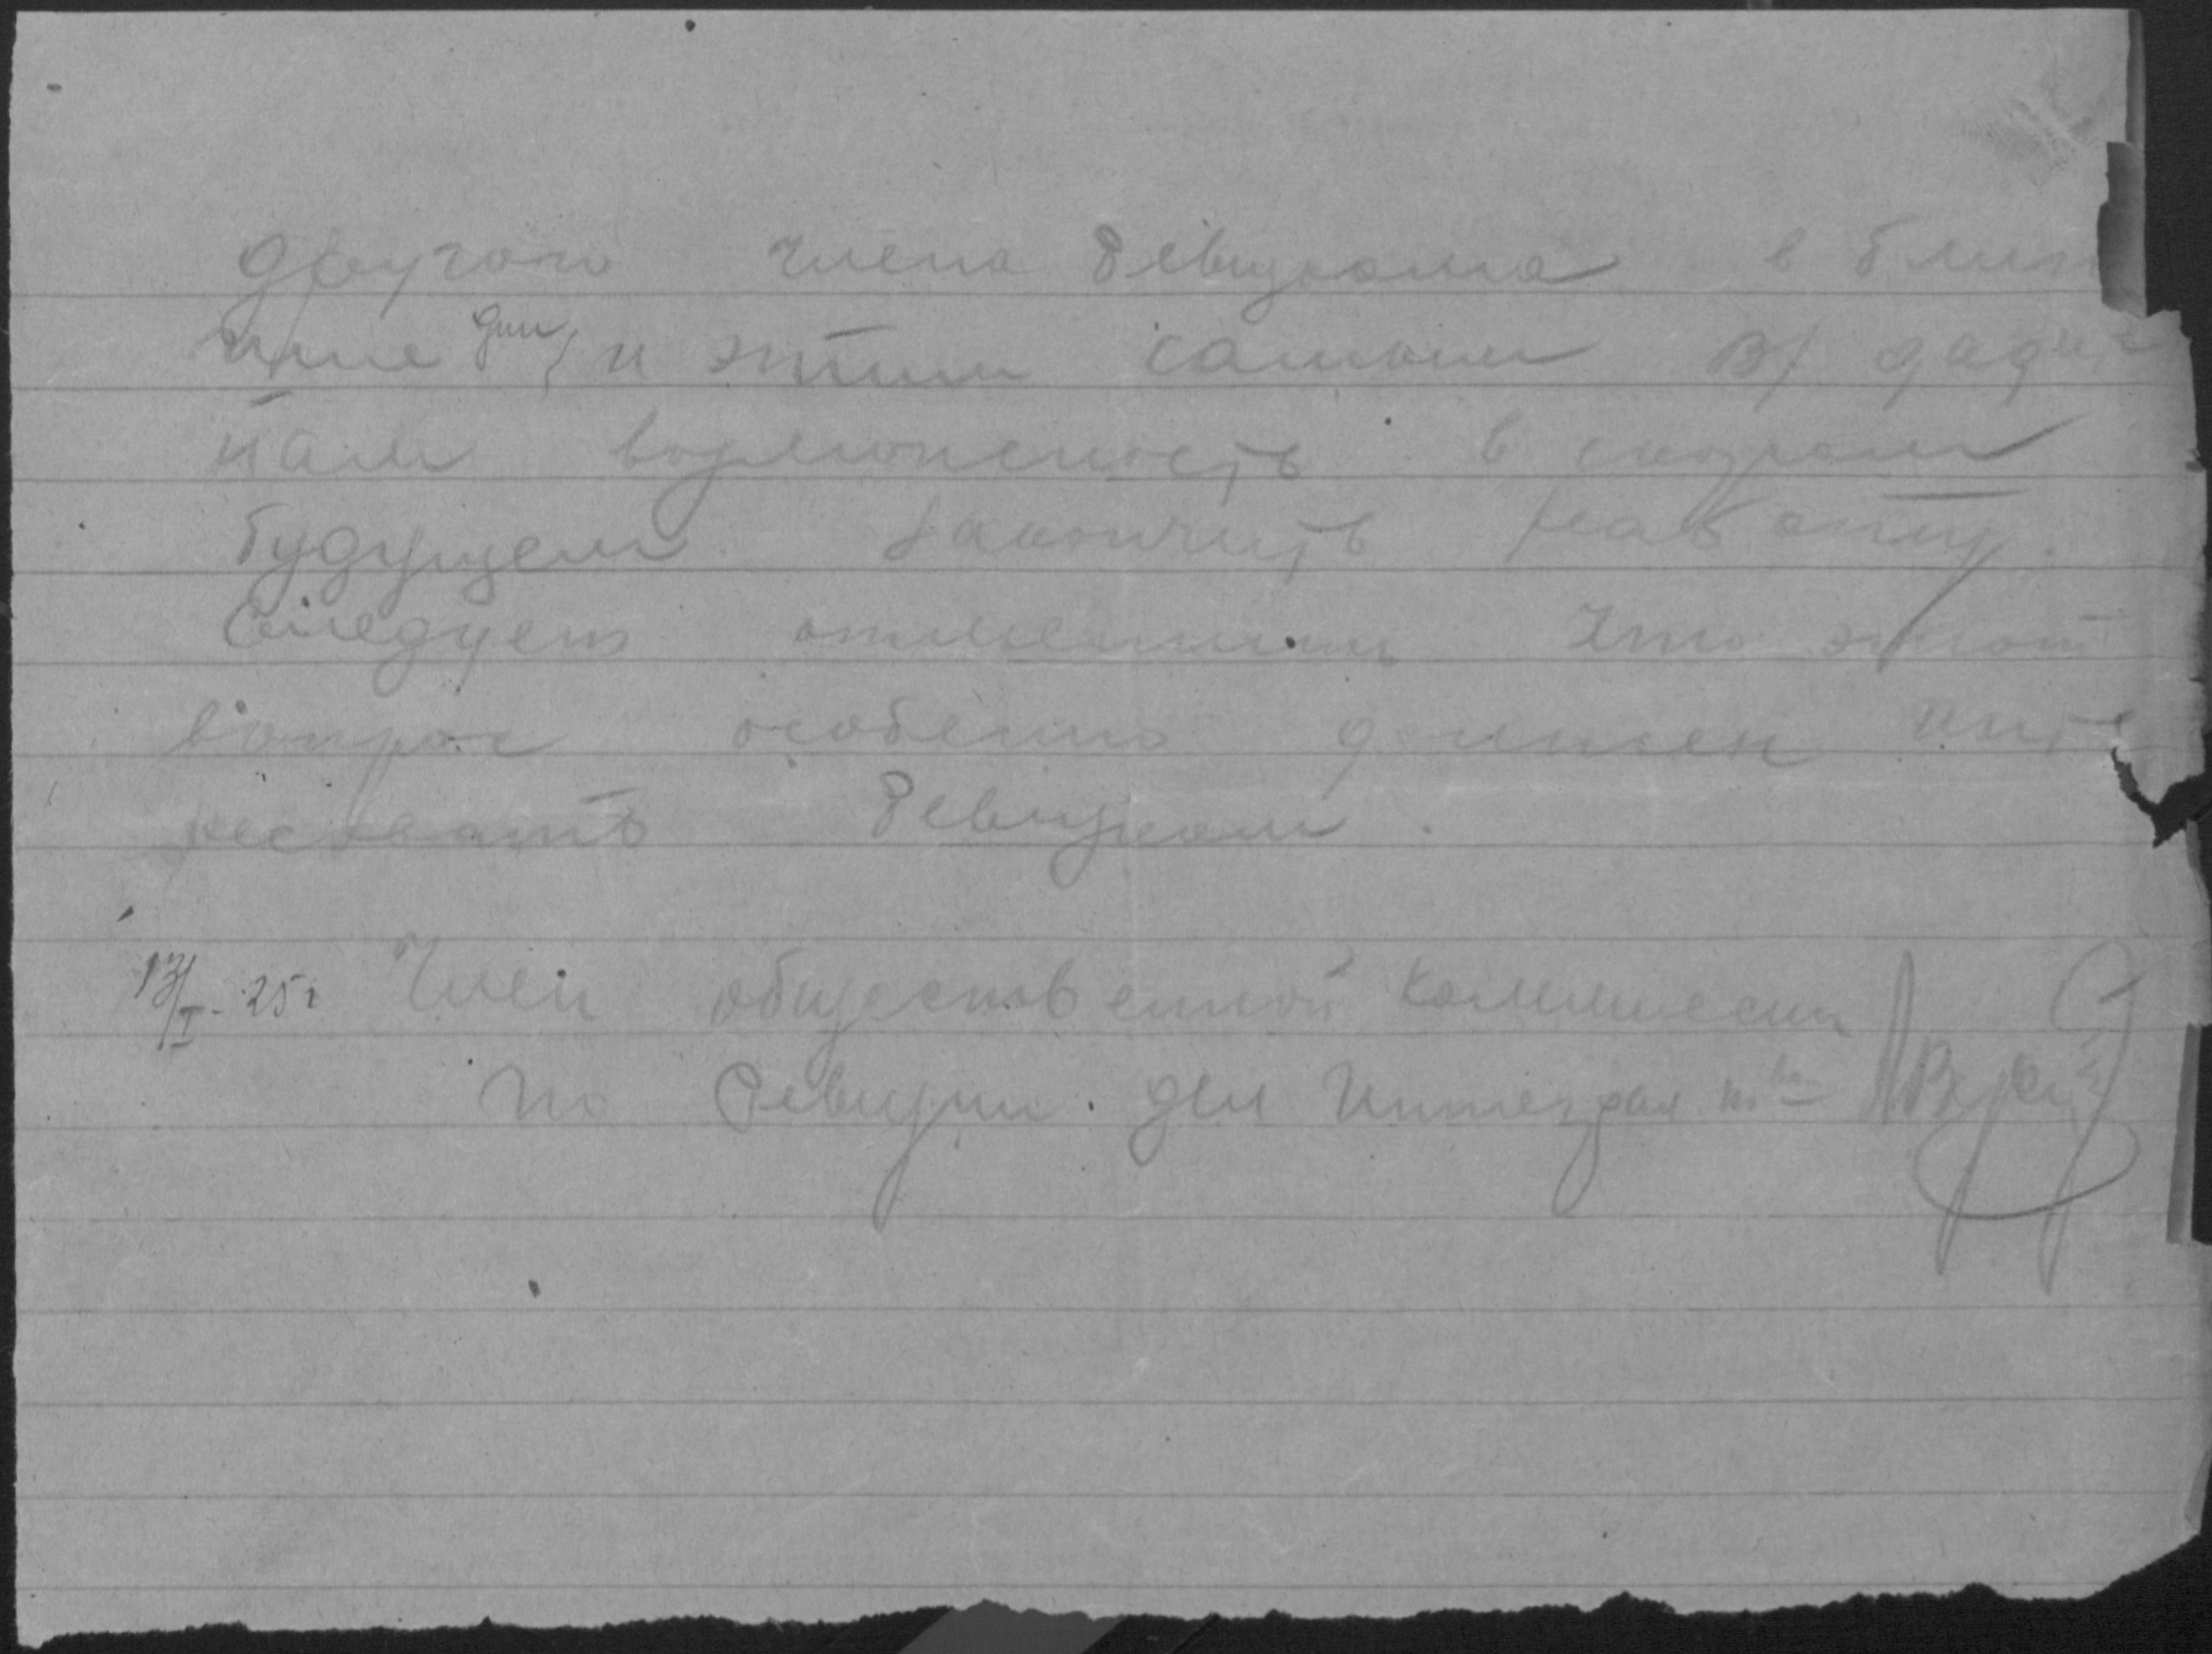 другого члена Ревизкома в ближ
ние дни, и этим самым В/ дадите
нам возможность в скором
будущем закончить работу.
Следует отметить что этот
вопрос особенно должен инте
ресовать Ревизком.
13/I-25г Член общественной Коммиссии
по Ревизии дел Интеграл